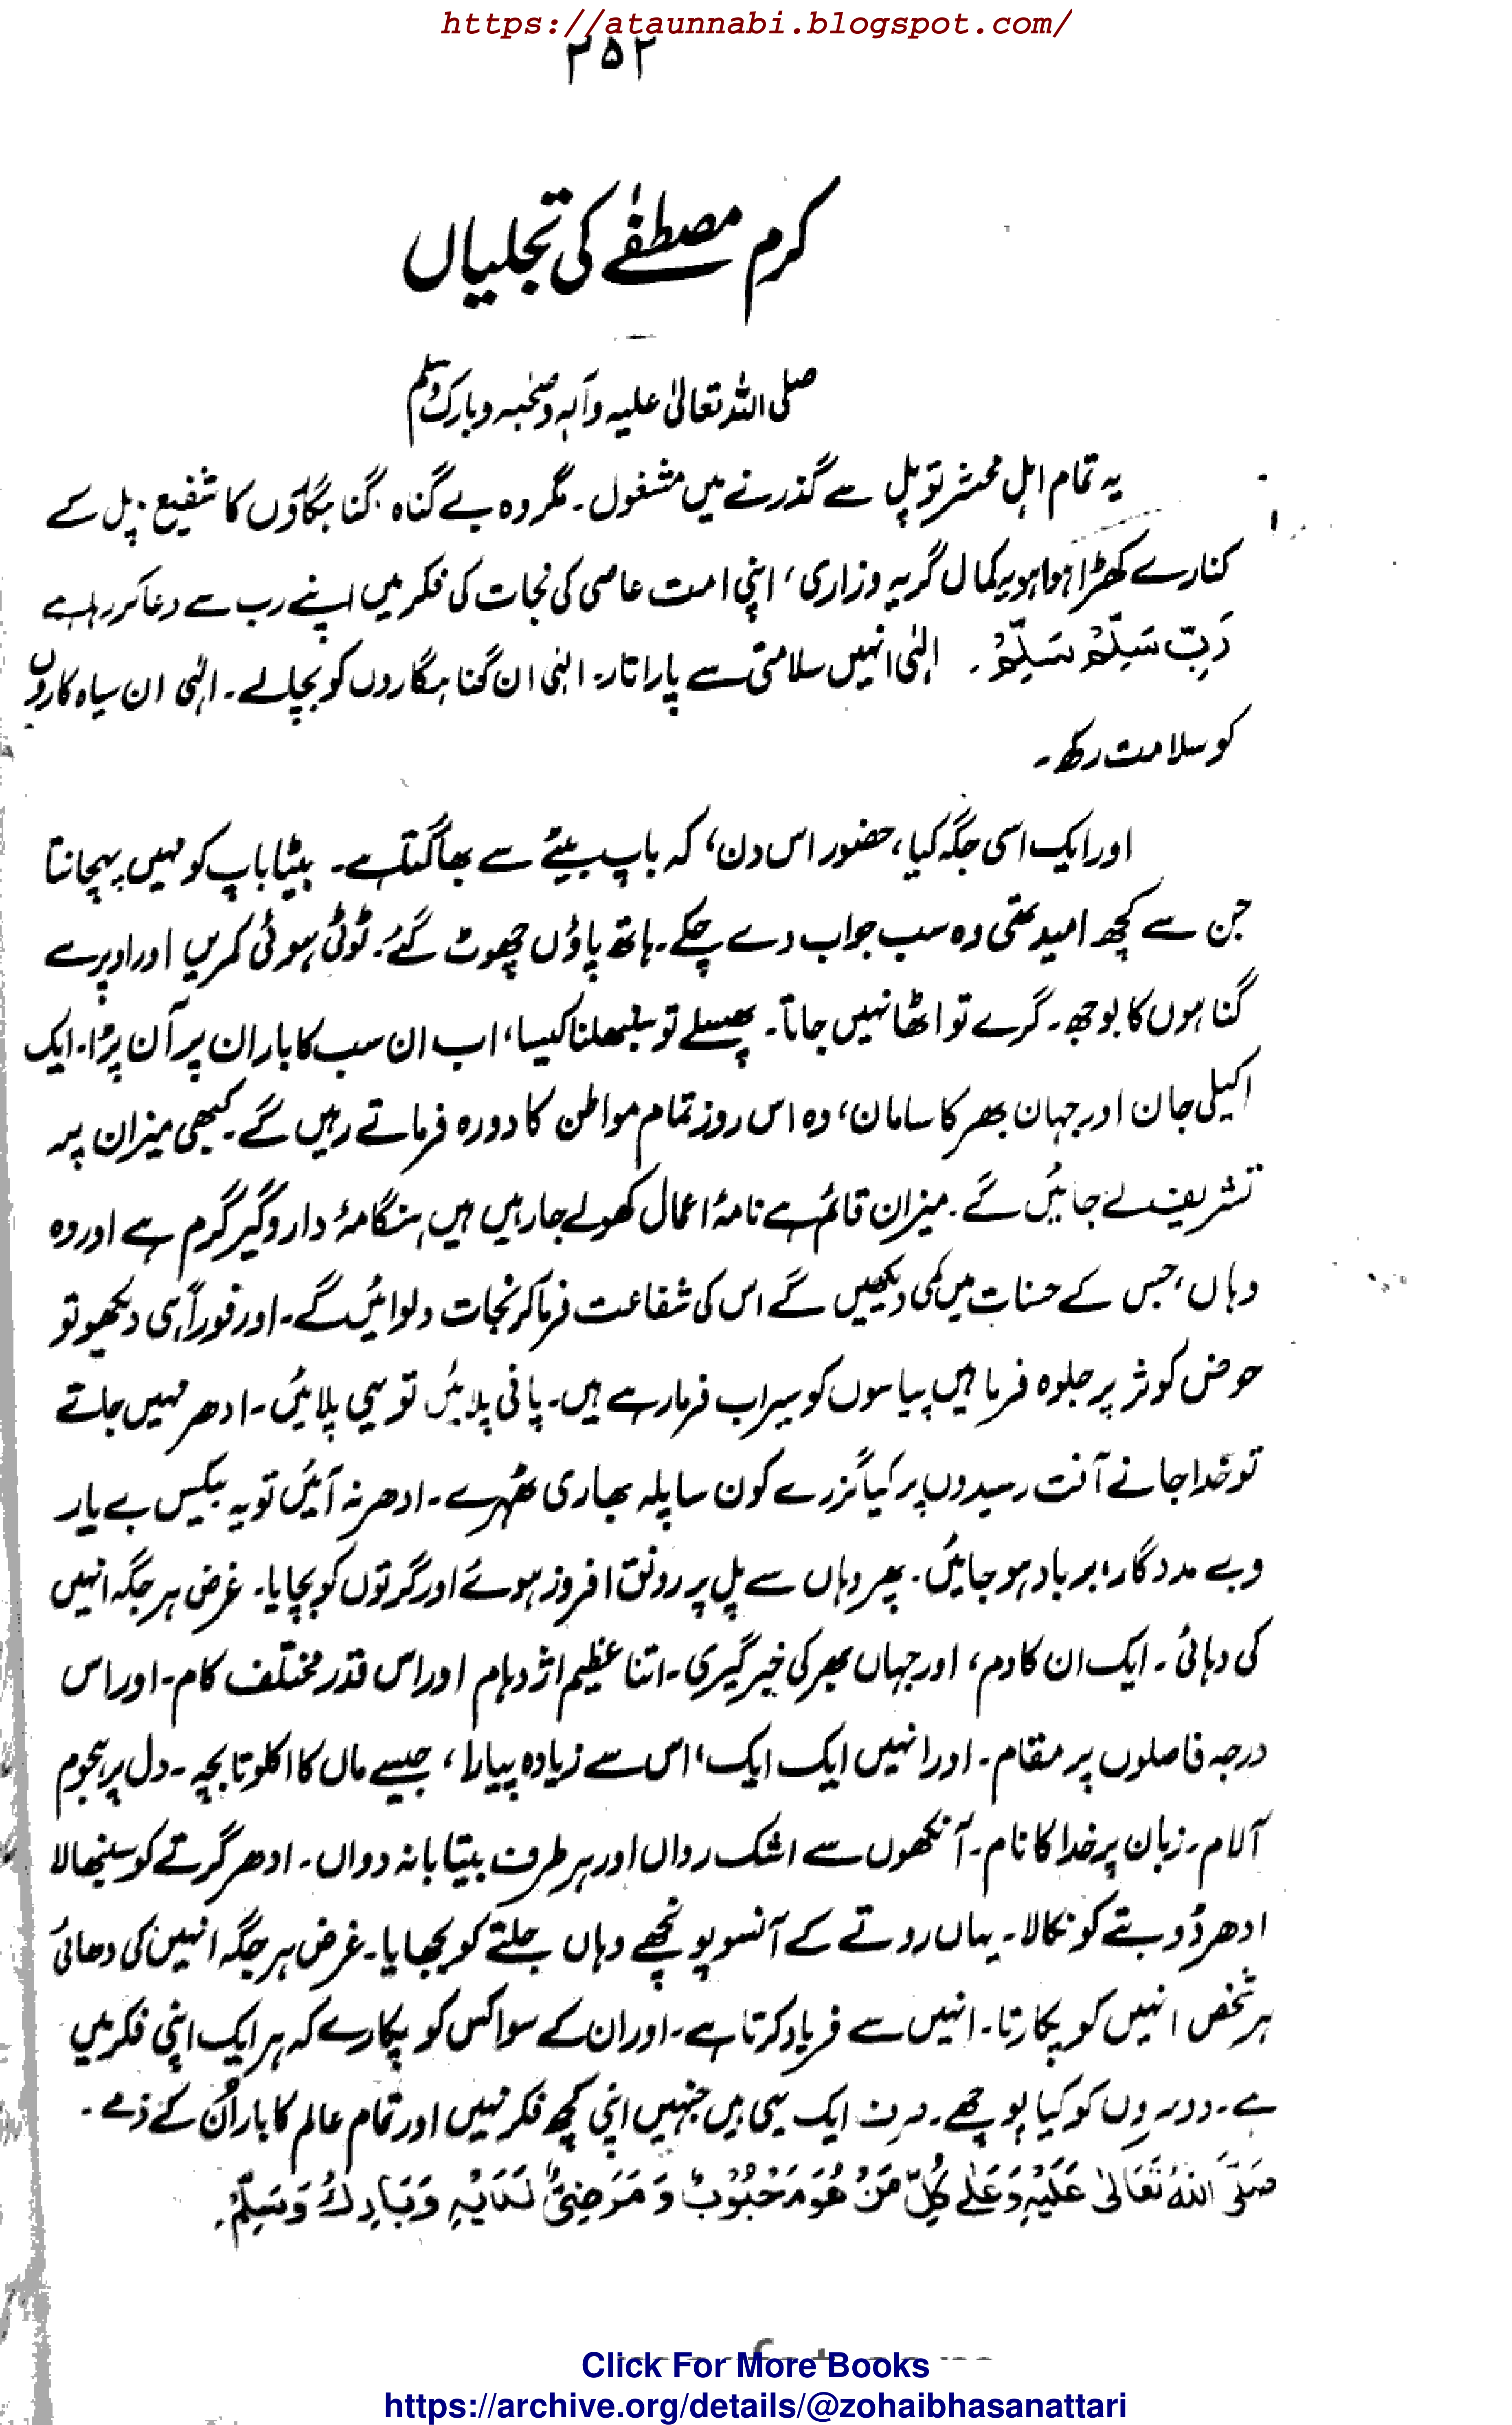 https://ataunnabi.blogspot.com/
۲۵۲
کرم مصطفےٰ کی تجلیاں
صلی اللہ تعالیٰ علیہ وآلہ وصحبہ وبارک وسلم
یہ تمام اہل محشر تو پل سے گذرنے میں مشغول۔ مگر وہ بے گناہ، گناہگاؤں کا شفیع، پل کے
کنارے کھڑا ہوا ہو بہ کمال گریہ وزاری، اپنی امت عاصی کی نجات کی فکر میں اپنے رب سے دعا کر رہا ہے
رَبِّ سَلِّمْ سَلِّمْ۔ الٰہی انہیں سلامتی سے پار اتار۔ الٰہی ان گناہگاروں کو بچالے۔ الٰہی ان سیاہ کاروں
کو سلامت رکھ۔
اور ایک اسی جگہ کیا، حضور اس دن، کہ باپ بیٹے سے بھاگتا ہے۔ بیٹا باپ کو نہیں پہچانتا
جن سے کچھ امید تھی وہ سب جواب دے چکے۔ ہاتھ پاؤں چھوٹ گئے۔ ٹوٹی ہوئی کمریں اور اوپر سے
گناہوں کا بوجھ۔ گرے تو اٹھا نہیں جاتا۔ پھسلے تو سنبھلنا کیسا، اب ان سب کا بار ان پر آن پڑا۔ ایک
اکیلی جان اور جہان بھر کا سامان، وہ اس روز تمام مواطن کا دورہ فرماتے رہیں گے۔ کبھی میزان پر
تشریف لے جائیں گے۔ میزان قائم ہے نامۂ اعمال کھولے جا رہیں ہیں ہنگامۂ دار و گیر گرم ہے اور وہ
وہاں، جس کے حسنات میں کمی دیکھیں گے اس کی شفاعت فرما کر نجات دلوائیں گے۔ اور فوراً ہی دیکھو تو
حوض کوثر پر جلوہ فرما ہیں پیاسوں کو سیراب فرما رہے ہیں۔ پانی پلائیں تو یہی پلائیں۔ ادھر نہیں جاتے
تو خدا جانے آفت رسیدوں پر کیا گزرے کون سا پلہ بھاری ٹھہرے۔ ادھر نہ آئیں تو یہ بیکس بے یار
و بے مددگار، برباد ہو جائیں۔ پھر وہاں سے پل پر رونق افروز ہوئے اور گرتوں کو بچایا۔ غرض ہر جگہ انہیں
کی دہائی۔ ایک ان کا دم، اور جہاں بھر کی خبر گیری۔ اتنا عظیم اژدہام اور اس قدر مختلف کام۔ اور اس
درجہ فاصلوں پر مقام۔ اور انہیں ایک ایک، اس سے زیادہ پیارا، جیسے ماں کا اکلوتا بچہ۔ دل پر ہجوم
آلام۔ زبان پر خدا کا نام۔ آنکھوں سے اشک رواں اور ہر طرف بیتابانہ دواں۔ ادھر گرتے کو سنبھالا
ادھر ڈوبتے کو نکالا۔ یہاں روتے کے آنسو پونچھے وہاں جلتے کو بجھایا۔ غرض ہر جگہ انہیں کی دھائی
ہر شخص انہیں کو پکارتا۔ انہیں سے فریاد کرتا ہے۔ اور ان کے سوا کس کو پکارے کہ ہر ایک اپنی فکر میں
ہے۔ دوسروں کو کیا پوچھے۔ صرف ایک یہی ہیں جنہیں اپنی کچھ فکر نہیں اور تمام عالم کا بار اُن کے ذمے۔
صَلَّی اللہُ تَعَالیٰ عَلَیْہِ وَعَلٰے کُلِّ مَنْ ھُوَ مَحْبُوْبٌ وَ مَرَضِیٌّ لَدَیْہِ وَبَارِکْ وَسَلِّمْ۔
Click For More Books
https://archive.org/details/@zohaibhasanattari